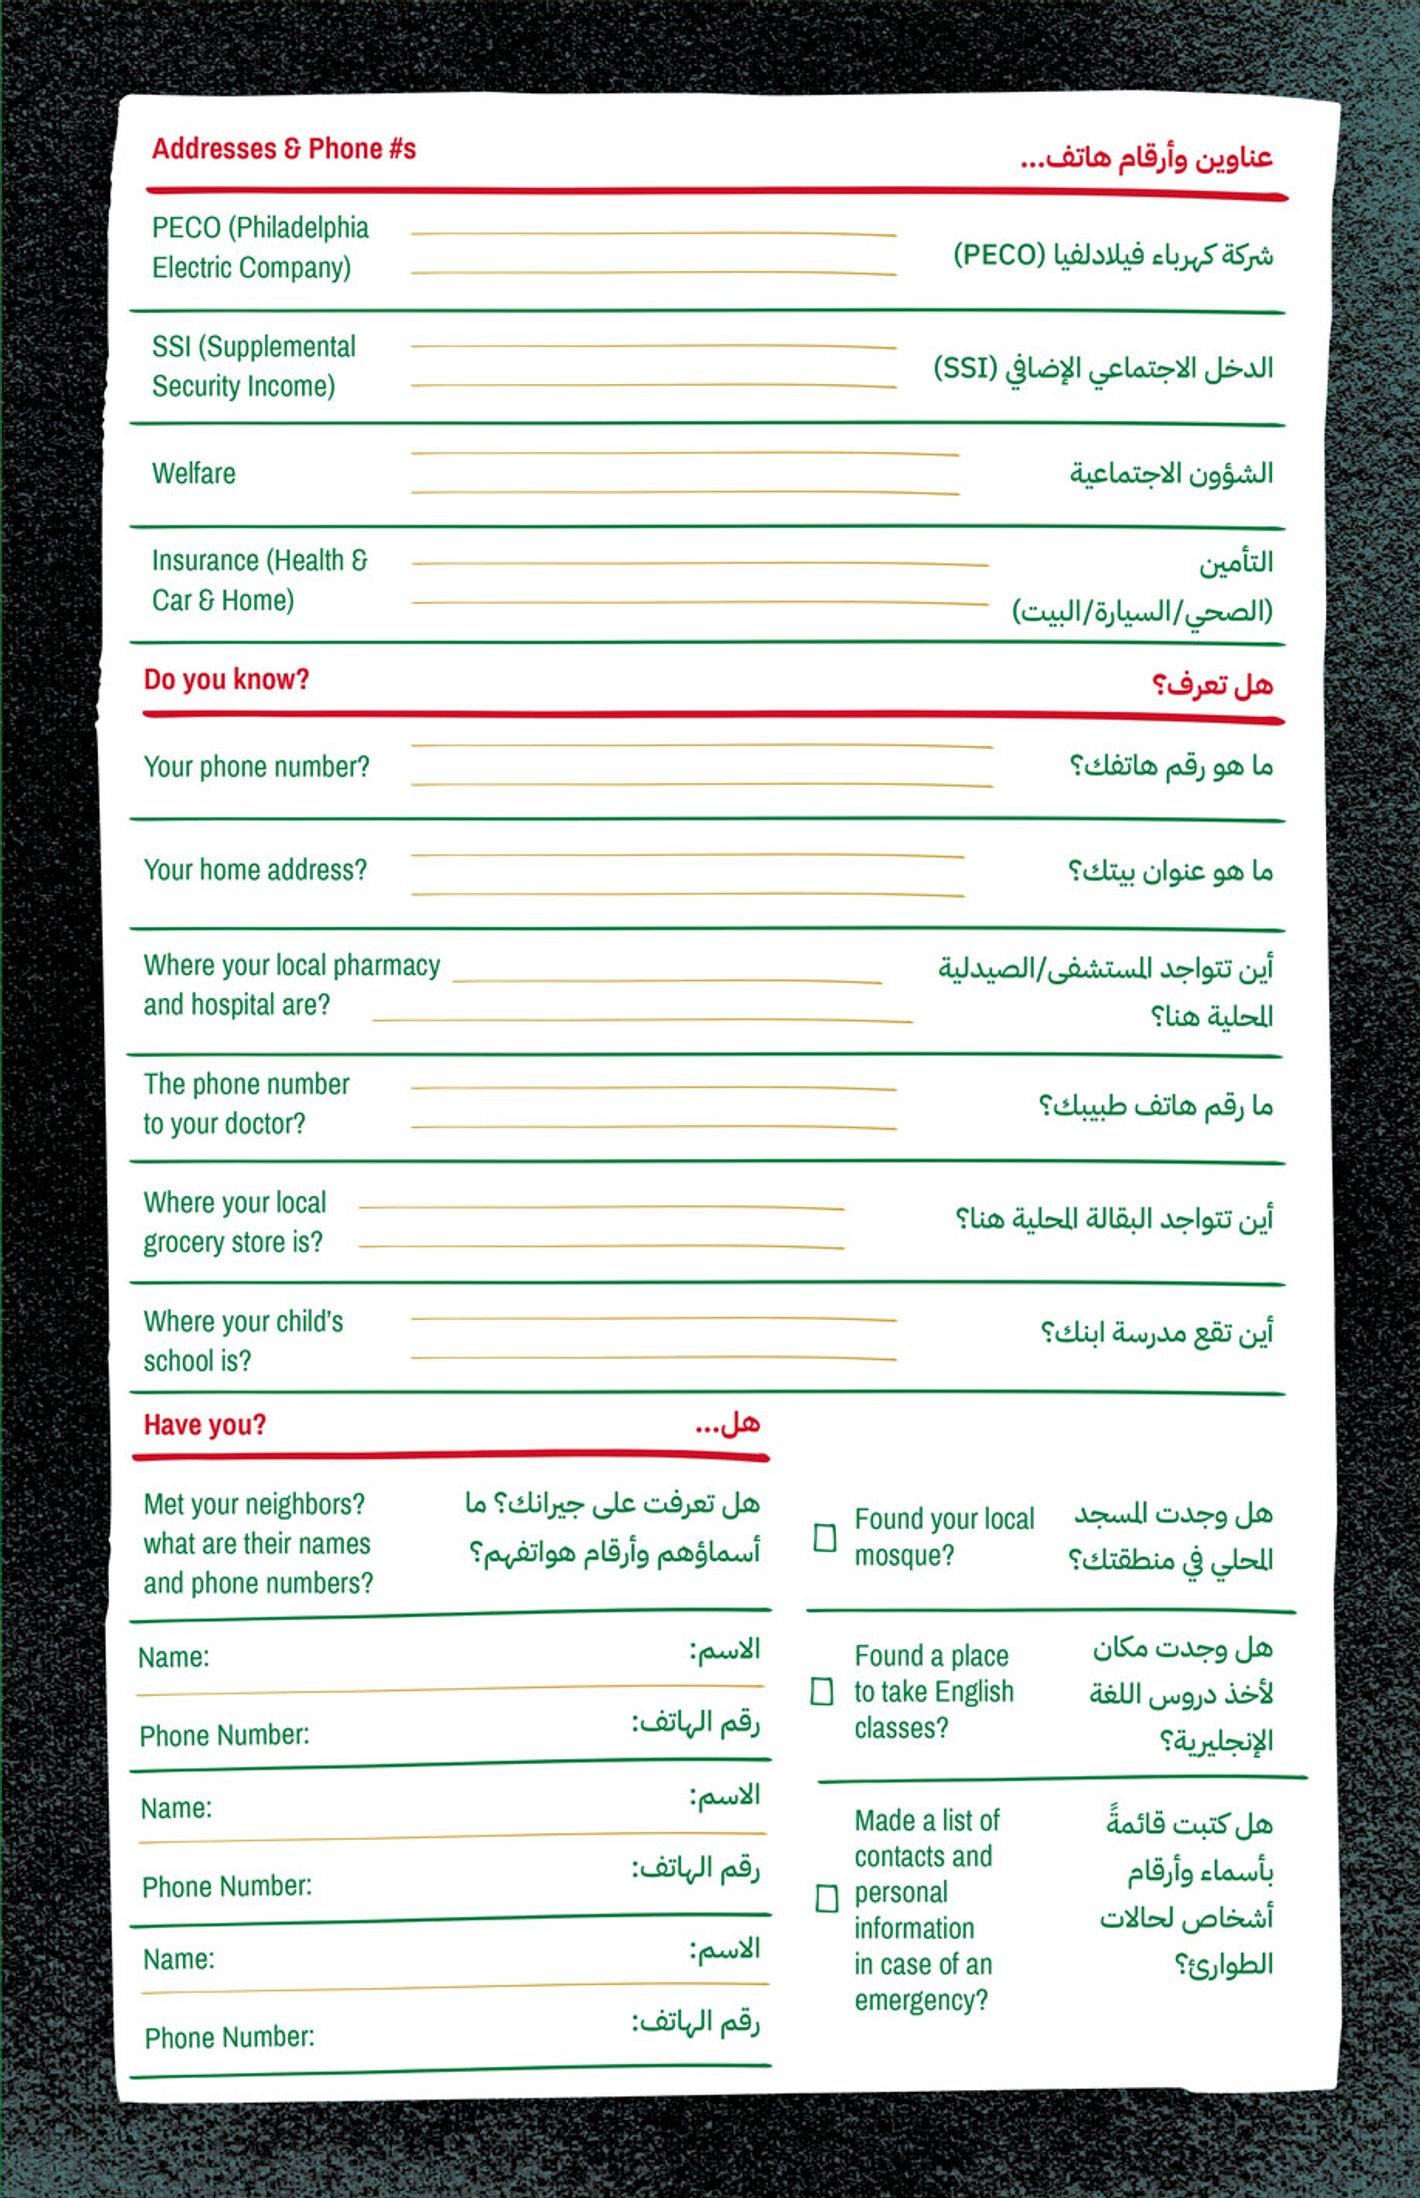 Addresses & Phone #s
عناوين وأرقام هاتف...
PECO (Philadelphia
Electric Company)
شركة كهرباء فيلادلفيا (PECO)
SSI (Supplemental
Security Income)
الدخل الاجتماعي الإضافي (SSI)
Welfare
الشؤون الاجتماعية
Insurance (Health &
Car & Home)
التأمين
(الصحي/السيارة/البيت)
Do you know?
هل تعرف؟
Your phone number?
ما هو رقم هاتفك؟
Your home address?
ما هو عنوان بيتك؟
Where your local pharmacy
and hospital are?
أين تتواجد المستشفى/الصيدلية
المحلية هنا؟
The phone number
to your doctor?
ما رقم هاتف طبيبك؟
Where your local
grocery store is?
أين تتواجد البقالة المحلية هنا؟
Where your child’s
school is?
أين تقع مدرسة ابنك؟
Have you?
هل...
Met your neighbors?
what are their names
and phone numbers?
هل تعرفت على جيرانك؟ ما
أسماؤهم وأرقام هواتفهم؟
Name:
الاسم:
Phone Number:
رقم الهاتف:
Name:
الاسم:
Phone Number:
رقم الهاتف:
Name:
الاسم:
Phone Number:
رقم الهاتف:
Found your local
mosque?
هل وجدت المسجد
المحلي في منطقتك؟
Found a place
to take English
classes?
هل وجدت مكان
لأخذ دروس اللغة
الإنجليرية؟
Made a list of
contacts and
personal
information
in case of an
emergency?
هل كتبت قائمةً
بأسماء وأرقام
أشخاص لحالات
الطوارئ؟